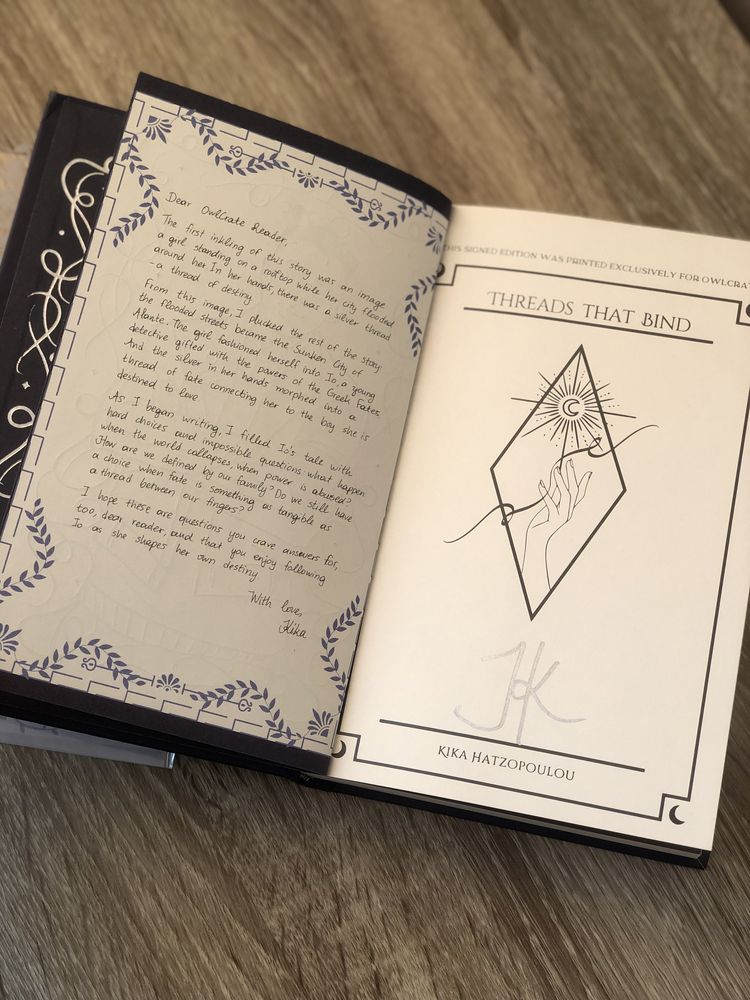 Dear OwlCrate Reader,
The first inkling of this story was an image:
a girl standing on a rooftop while her city flooded
around her. In her hands, there was a silver thread
- a thread of destiny
From this image, I plucked the rest of the story:
the flooded streets became the Sunken City of
Alante. The girl fashioned herself into Io, a young
detective gifted with the powers of the Greek Fates.
And the silver in her hands morphed into a
thread of fate connecting her to the boy she is
destined to love.
As I began writing, I filled Io's tale with
hard choices and impossible questions: what happen
when the world collapses, when power is abused?
How are we defined by our family? Do we still have
a choice when fate is something as tangible as
a thread between our fingers?
I hope these are questions you crave answers for,
too, dear reader, and that you enjoy following
Io as she shapes her own destiny
With love,
Kika
THIS SIGNED EDITION WAS PRINTED EXCLUSIVELY FOR OWLCRAT
THREADS THAT BIND
HK
KIKA HATZOPOULOU